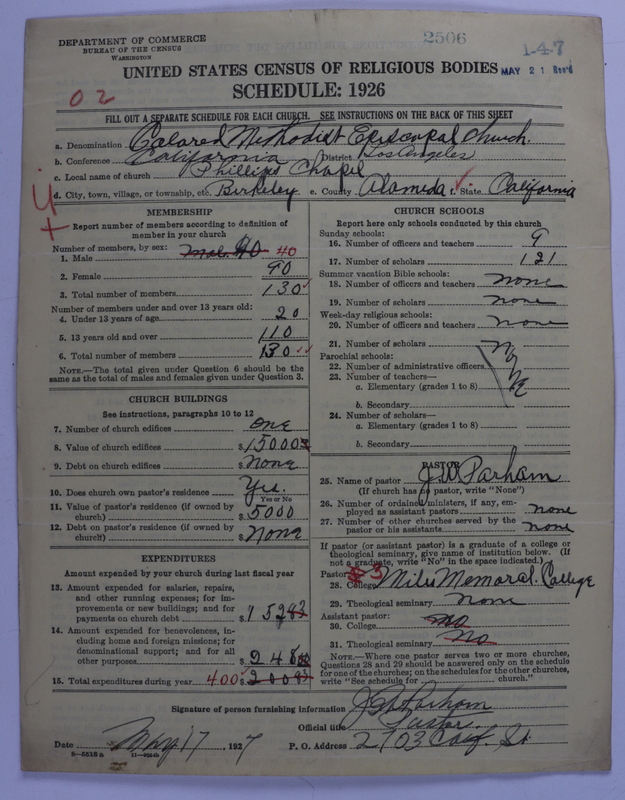 DEPARTMENT OF COMMERCE
BUREAU OF THE CENSUS
WASHINGTON
2506
1-47
MAY 21 Rec'd
UNITED STATES CENSUS OF RELIGIOUS BODIES
SCHEDULE: 1926
02
FILL OUT A SEPARATE SCHEDULE FOR EACH CHURCH. SEE INSTRUCTIONS ON THE BACK OF THIS SHEET
a. Denomination Colored Methodist Episcopal Church.
b. Conference California District Los Angeles
c. Local name of church Phillips Chapel
d. City, town, village, or township, etc. Berkeley e. County Alameda f. State California
MEMBERSHIP
Report number of members according to definition of member in your church
Number of members, by sex:
1. Male 40 40
2. Female 90
3. Total number of members 130
Number of members under and over 13 years old:
4. Under 13 years of age 20
5. 13 years old and over 110
6. Total number of members 130
NOTE.—The total given under Question 6 should be the same as the total of males and females given under Question 3.
CHURCH BUILDINGS
See instructions, paragraphs 10 to 12
7. Number of church edifices one
8. Value of church edifices $15000
9. Debt on church edifices $ None
10. Does church own pastor's residence Yes.
Yes or No
11. Value of pastor's residence (if owned by church) $5000
12. Debt on pastor's residence (if owned by church) $ None
EXPENDITURES
Amount expended by your church during last fiscal year
13. Amount expended for salaries, repairs, and other running expenses; for improvements or new buildings; and for payments on church debt $152
14. Amount expended for benevolences, including home and foreign missions; for denominational support; and for all other purposes $248
15. Total expenditures during year 400 $
CHURCH SCHOOLS
Report here only schools conducted by this church
Sunday schools:
16. Number of officers and teachers 9
17. Number of scholars 121
Summer vacation Bible schools:
18. Number of officers and teachers none
19. Number of scholars none
Week-day religious schools:
20. Number of officers and teachers none
21. Number of scholars None
Parochial schools:
22. Number of administrative officers
23. Number of teachers—
a. Elementary (grades 1 to 8)
b. Secondary
24. Number of scholars—
a. Elementary (grades 1 to 8)
b. Secondary
PASTOR
25. Name of pastor J.W. Parham
(If church has no pastor, write "None")
26. Number of ordained ministers, if any, employed as assistant pastors none
27. Number of other churches served by the pastor or his assistants none
If pastor (or assistant pastor) is a graduate of a college or theological seminary, give name of institution below. (If not a graduate, write "No" in the space indicated.)
Pastor: 3
28. College Miles Memoral. College
29. Theological seminary none
Assistant pastor:
30. College no
31. Theological seminary No
NOTE.—Where one pastor serves two or more churches, Questions 28 and 29 should be answered only on the schedule for one of the churches; on the schedules for the other churches, write "See schedule for church."
Signature of person furnishing information J W Parham
Official title Pastor
Date May 17, 1927 P. O. Address 2103 Calif. St
8-5515a